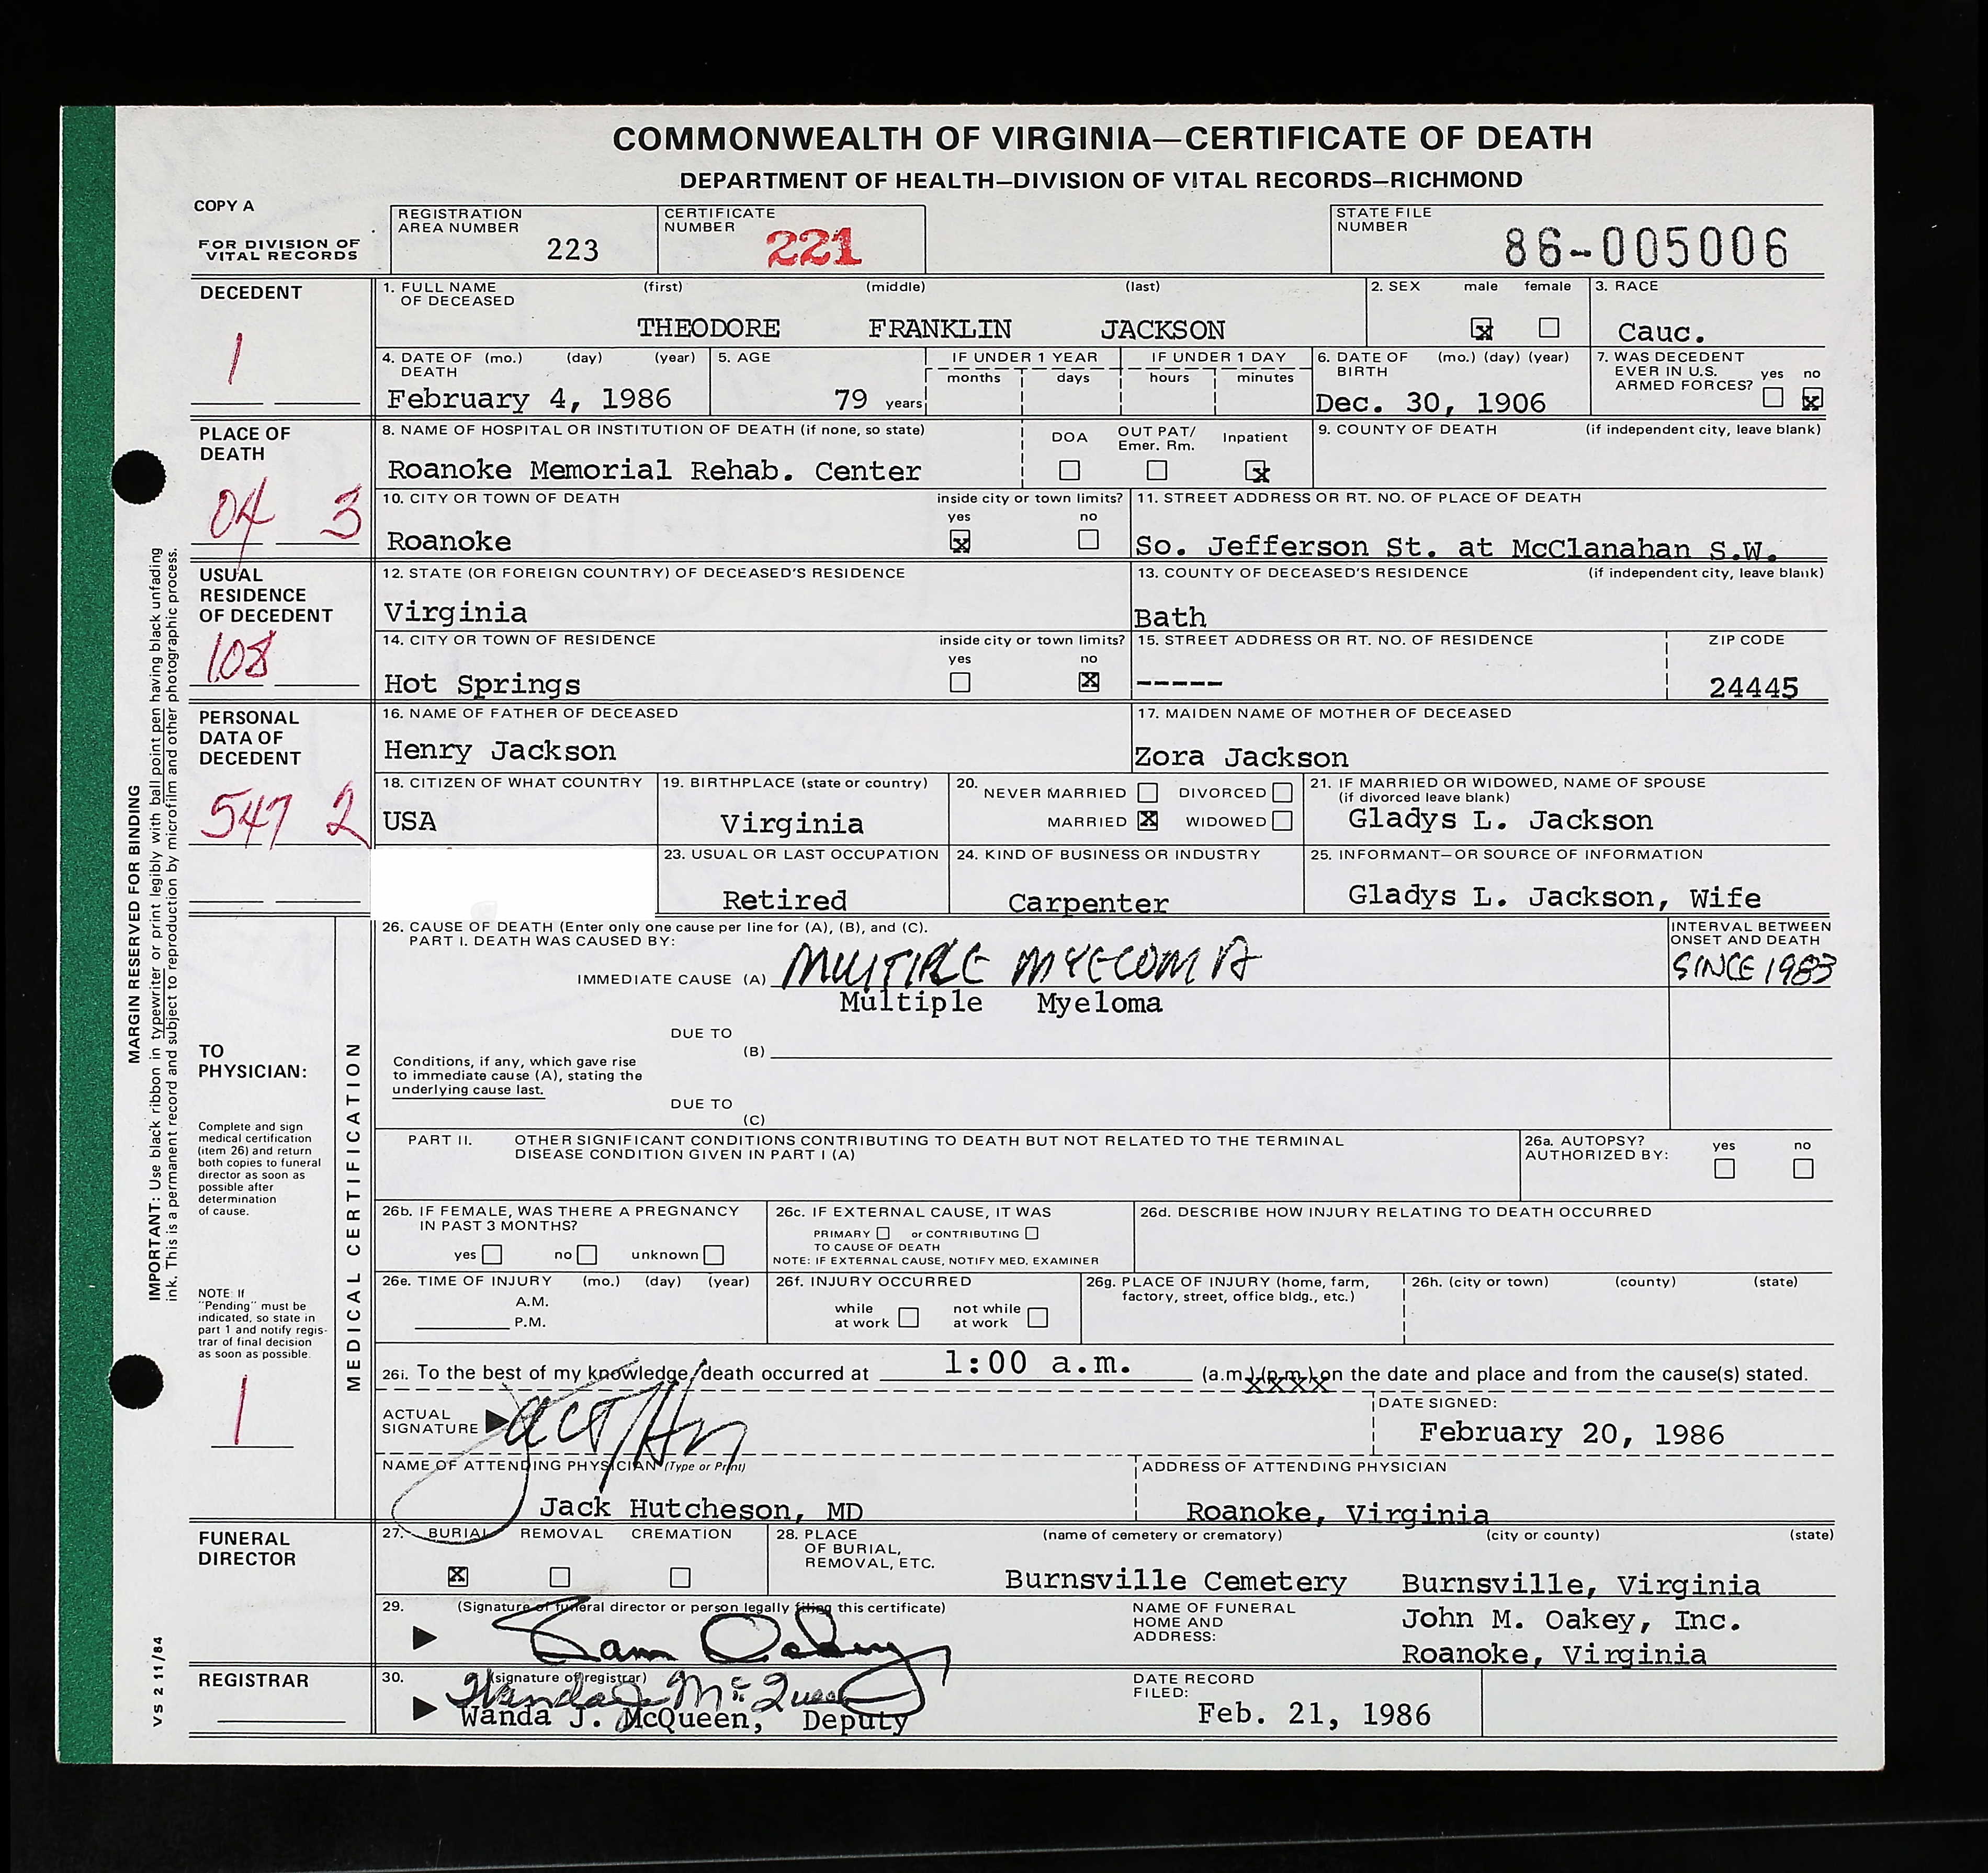 COMMONWEALTH OF VIRGINIA—CERTIFICATE OF DEATH
DEPARTMENT OF HEALTH—DIVISION OF VITAL RECORDS—RICHMOND
COPY A
FOR DIVISION OF VITAL RECORDS
REGISTRATION AREA NUMBER 223
CERTIFICATE NUMBER 221
STATE FILE NUMBER 86-005006
DECEDENT
1
1. FULL NAME OF DECEASED (first) (middle) (last)
THEODORE FRANKLIN JACKSON
2. SEX male female
x
3. RACE
Cauc.
4. DATE OF DEATH (mo.) (day) (year)
February 4, 1986
5. AGE
79 years
IF UNDER 1 YEAR
months days
IF UNDER 1 DAY
hours minutes
6. DATE OF BIRTH (mo.) (day) (year)
Dec. 30, 1906
7. WAS DECEDENT EVER IN U.S. ARMED FORCES? yes no
x
PLACE OF DEATH
04 3
8. NAME OF HOSPITAL OR INSTITUTION OF DEATH (if none, so state)
Roanoke Memorial Rehab. Center
DOA OUT PAT/ Emer. Rm. Inpatient
x
9. COUNTY OF DEATH (if independent city, leave blank)
10. CITY OR TOWN OF DEATH
Roanoke
inside city or town limits?
yes no
x
11. STREET ADDRESS OR RT. NO. OF PLACE OF DEATH
So. Jefferson St. at McClanahan S.W.
USUAL RESIDENCE OF DECEDENT
108
12. STATE (OR FOREIGN COUNTRY) OF DECEASED'S RESIDENCE
Virginia
13. COUNTY OF DECEASED'S RESIDENCE (if independent city, leave blank)
Bath
14. CITY OR TOWN OF RESIDENCE
Hot Springs
inside city or town limits?
yes no
x
15. STREET ADDRESS OR RT. NO. OF RESIDENCE
-----
ZIP CODE
24445
PERSONAL DATA OF DECEDENT
547 2
16. NAME OF FATHER OF DECEASED
Henry Jackson
17. MAIDEN NAME OF MOTHER OF DECEASED
Zora Jackson
18. CITIZEN OF WHAT COUNTRY
USA
19. BIRTHPLACE (state or country)
Virginia
20. NEVER MARRIED DIVORCED
MARRIED x WIDOWED
21. IF MARRIED OR WIDOWED, NAME OF SPOUSE
(if divorced leave blank)
Gladys L. Jackson
23. USUAL OR LAST OCCUPATION
Retired
24. KIND OF BUSINESS OR INDUSTRY
Carpenter
25. INFORMANT—OR SOURCE OF INFORMATION
Gladys L. Jackson, Wife
MARGIN RESERVED FOR BINDING
IMPORTANT: Use black ribbon in typewriter or print legibly with ball point pen having black unfading
ink. This is a permanent record and subject to reproduction by microfilm and other photographic process.
VS 2 11/84
MEDICAL CERTIFICATION
TO PHYSICIAN:
Complete and sign
medical certification
(item 26) and return
both copies to funeral
director as soon as
possible after
determination
of cause.
NOTE: If
"Pending" must be
indicated, so state in
part 1 and notify regis-
trar of final decision
as soon as possible.
1
26. CAUSE OF DEATH (Enter only one cause per line for (A), (B), and (C).
PART I. DEATH WAS CAUSED BY:
IMMEDIATE CAUSE (A) MULTIPLE MYELOMA
Multiple Myeloma
INTERVAL BETWEEN ONSET AND DEATH
SINCE 1983
DUE TO
(B)
Conditions, if any, which gave rise
to immediate cause (A), stating the
underlying cause last.
DUE TO
(C)
PART II. OTHER SIGNIFICANT CONDITIONS CONTRIBUTING TO DEATH BUT NOT RELATED TO THE TERMINAL
DISEASE CONDITION GIVEN IN PART I (A)
26a. AUTOPSY? yes no
AUTHORIZED BY:
26b. IF FEMALE, WAS THERE A PREGNANCY
IN PAST 3 MONTHS?
yes no unknown
26c. IF EXTERNAL CAUSE, IT WAS
PRIMARY or CONTRIBUTING
TO CAUSE OF DEATH
NOTE: IF EXTERNAL CAUSE, NOTIFY MED. EXAMINER
26d. DESCRIBE HOW INJURY RELATING TO DEATH OCCURRED
26e. TIME OF INJURY (mo.) (day) (year)
A.M.
P.M.
26f. INJURY OCCURRED
while at work not while at work
26g. PLACE OF INJURY (home, farm,
factory, street, office bldg., etc.)
26h. (city or town) (county) (state)
26i. To the best of my knowledge, death occurred at 1:00 a.m. (a.m.) (p.m.) on the date and place and from the cause(s) stated.
xxxx
ACTUAL SIGNATURE
DATE SIGNED:
February 20, 1986
NAME OF ATTENDING PHYSICIAN (Type or Print)
Jack Hutcheson, MD
ADDRESS OF ATTENDING PHYSICIAN
Roanoke, Virginia
FUNERAL DIRECTOR
27. BURIAL REMOVAL CREMATION
x
28. PLACE OF BURIAL, REMOVAL, ETC.
(name of cemetery or crematory) (city or county) (state)
Burnsville Cemetery Burnsville, Virginia
29. (Signature of funeral director or person legally filing this certificate)
Sam Oakey
NAME OF FUNERAL HOME AND ADDRESS:
John M. Oakey, Inc.
Roanoke, Virginia
REGISTRAR
30. (signature of registrar)
Wanda J. McQueen
Wanda J. McQueen, Deputy
DATE RECORD FILED:
Feb. 21, 1986